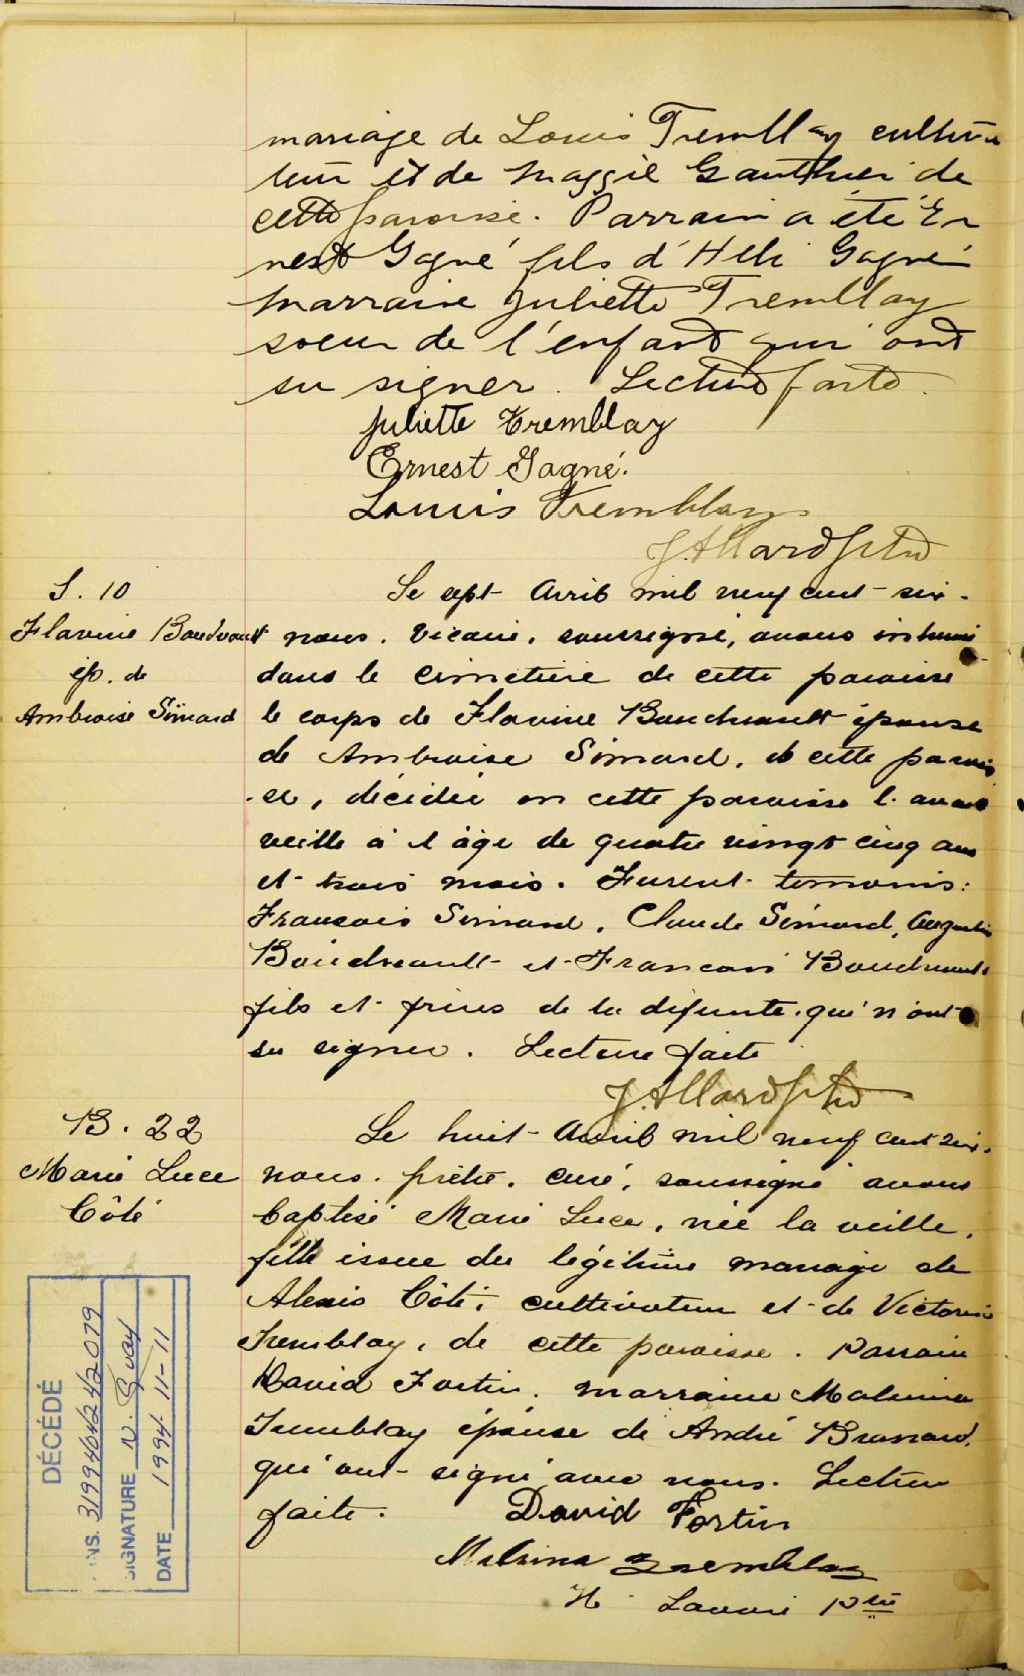 mariage de Louis Tremblay cultiva
teur et de Maggie Gauthier de
cette paroisse. Parrain a été Er
nest Gagné fils d'Héli Gagné
Marraine Juliette Tremblay
soeur de l'enfant qui ont
su signer. Lecture faite.
Juliette Tremblay
Ernest Gagné.
Louis Tremblay
J. Allard Ptre
S. 10
Flavine Boudreault
ép. de
Ambroise Simard
Le sept Avril mil neuf cent six.
nous. Vicaire. soussigné, avons inhumé
dans le cimetière de cette paroisse
le corps de Flavine Boudreault épouse
de Ambroise Simard, de cette parois
-se, décédée en cette paroisse l'avant
veille à l'âge de quatre vingt cinq ans
et trois mois. Furent témoins:
François Simard, Claude Simard, Augustin
Boudreault et François Boudreault
fils et frères de la défunte. qui n'ont
su signer. Lecture faite
J. Allard Ptre
B. 22
Marie Luce
Côté
Le huit Avril mil neuf cent six.
nous. prêtre. curé, soussigné avons
baptisé Marie Luce, née la veille,
fille issue du légitime mariage de
Alexis Côté, cultivateur et de Victorie
Tremblay, de cette paroisse. Parrain
David Fortin. marraine Malvina
Tremblay épouse de André
qui ont signé avec nous. Lecture
faite.
David Fortin
Malvina Tremblay
H. Lavoie Ptre
DÉCÉDÉ
INS. 3199404242079
SIGNATURE N. Guay
DATE 1994-11-11